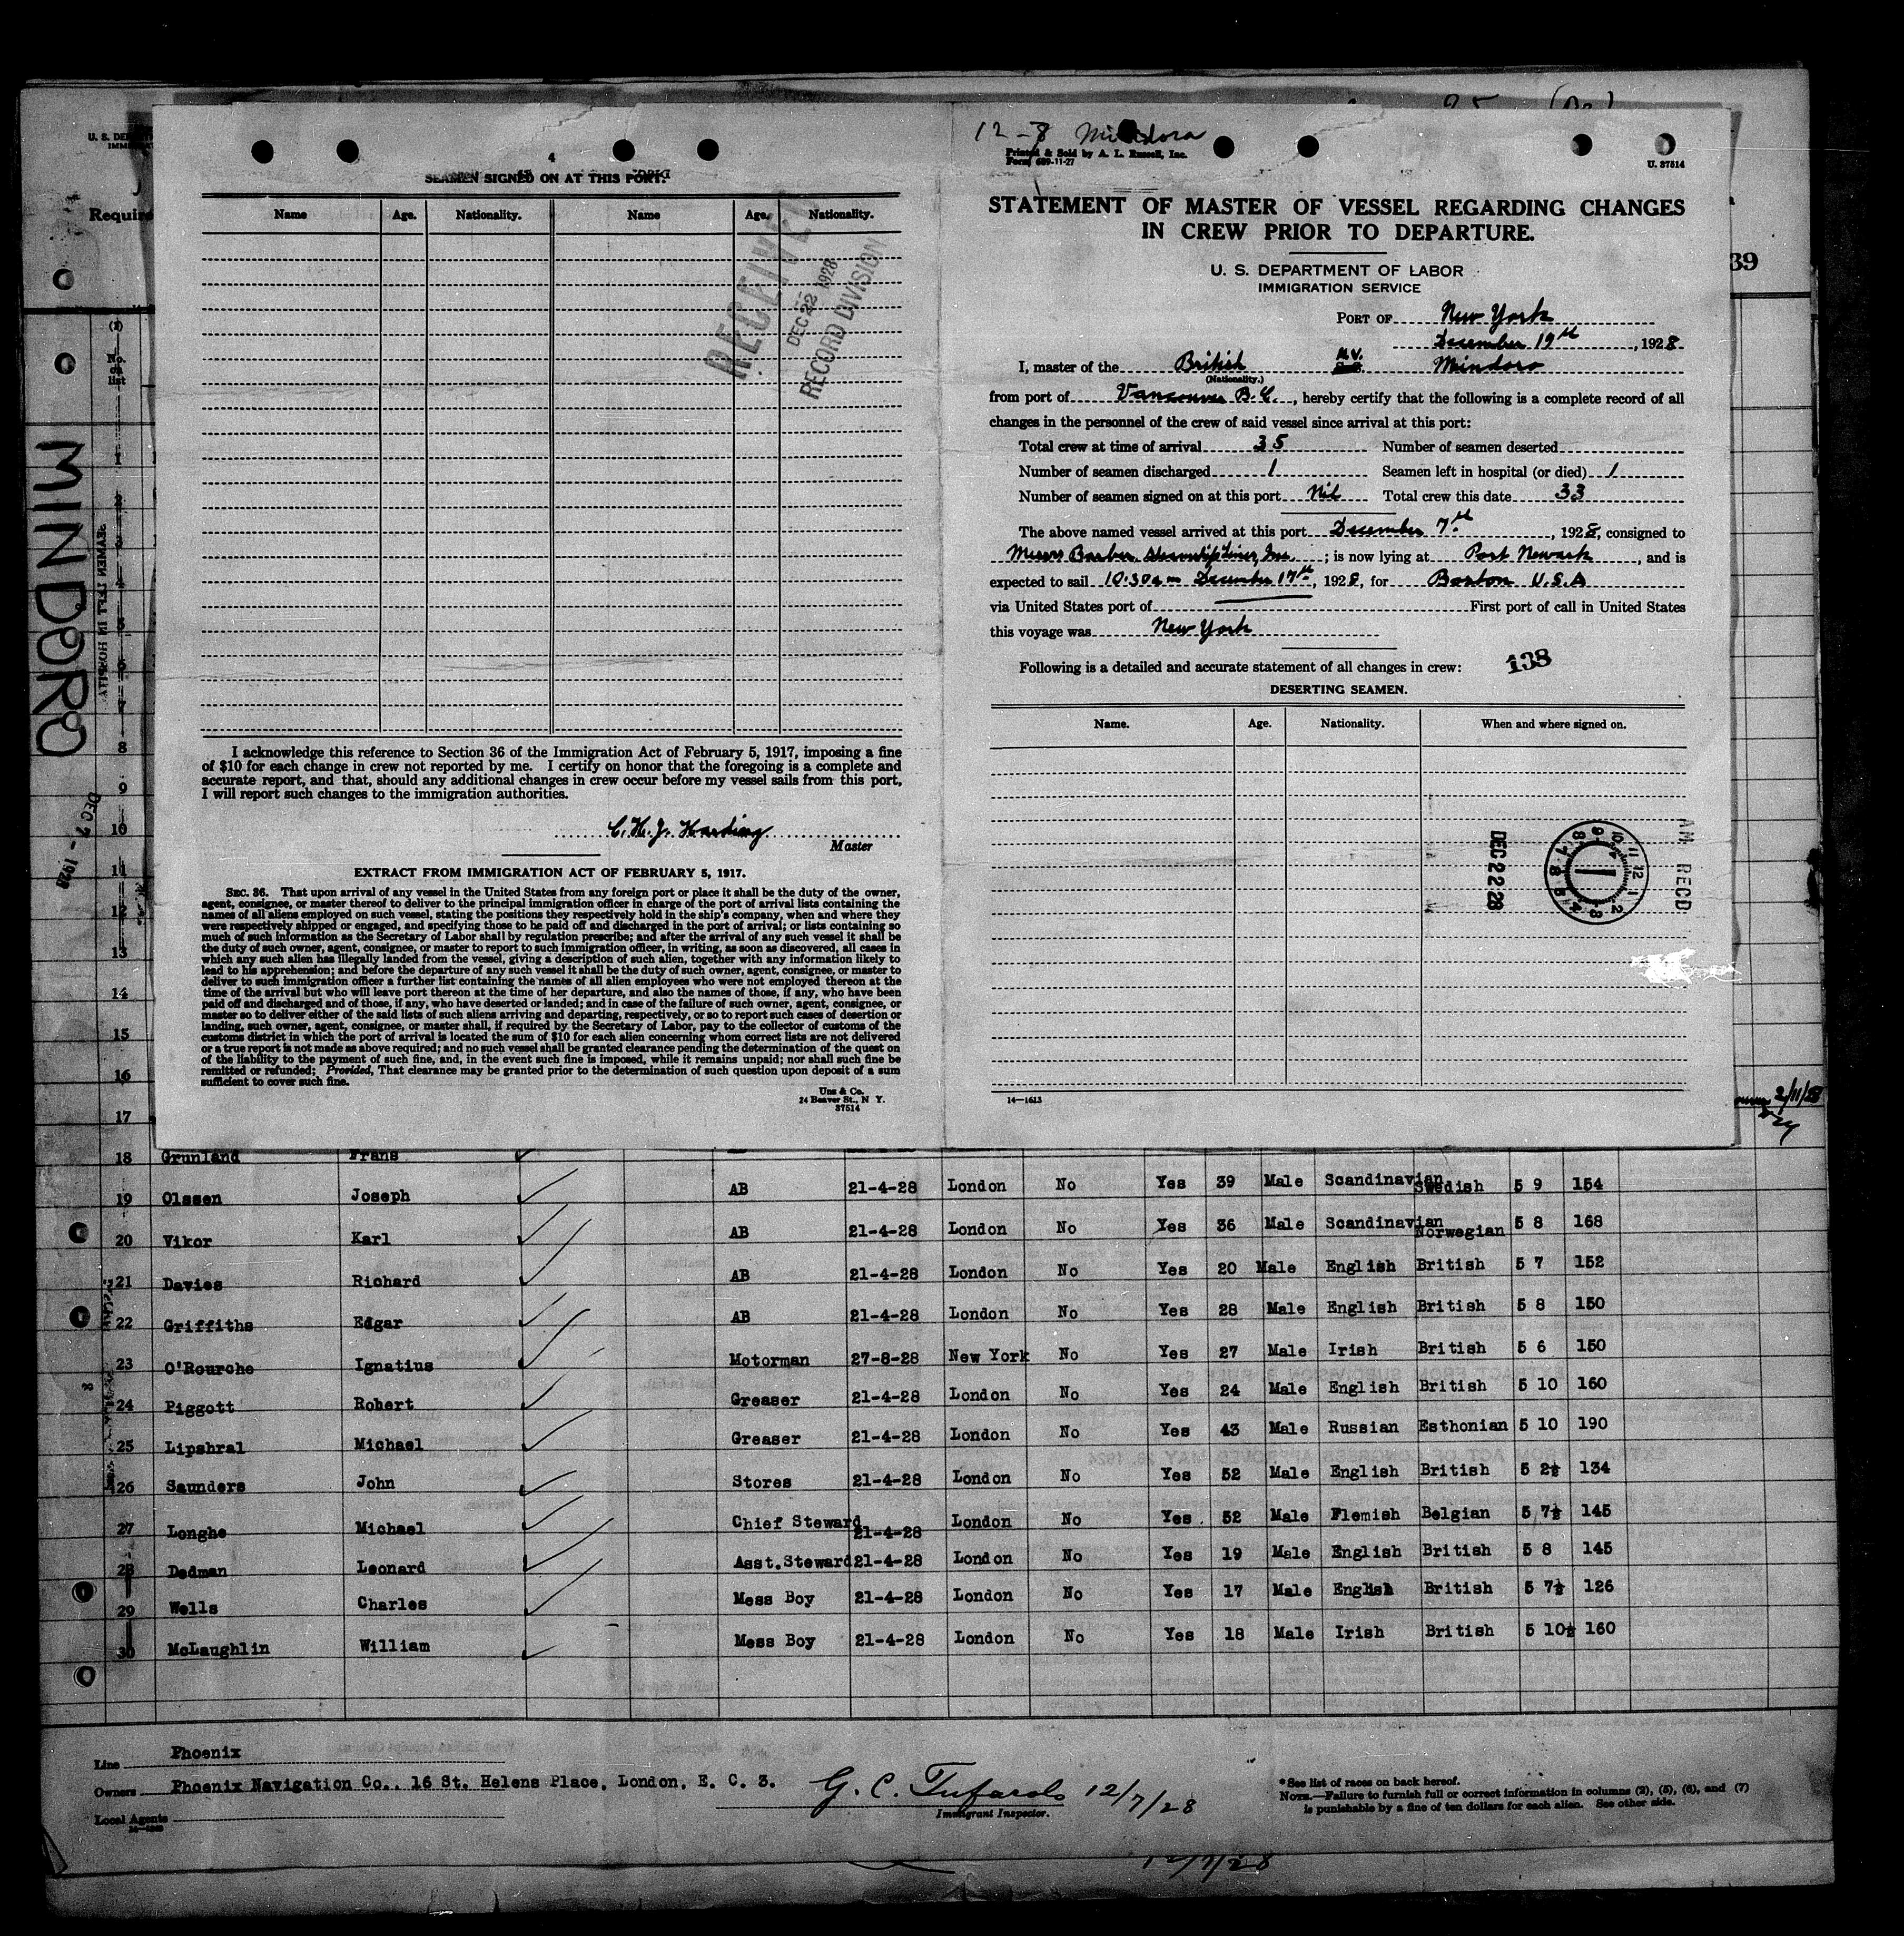 4
SEAMEN SIGNED ON AT THIS PORT.
Name Age. Nationality. Name Age. Nationality.
RECEIVED
DEC 22 1928
RECORD DIVISION
I acknowledge this reference to Section 36 of the Immigration Act of February 5, 1917, imposing a fine
of $10 for each change in crew not reported by me. I certify on honor that the foregoing is a complete and
accurate report, and that, should any additional changes in crew occur before my vessel sails from this port,
I will report such changes to the immigration authorities.
C. H. J. Harding
Master
EXTRACT FROM IMMIGRATION ACT OF FEBRUARY 5, 1917.
SEC. 36. That upon arrival of any vessel in the United States from any foreign port or place it shall be the duty of the owner,
agent, consignee, or master thereof to deliver to the principal immigration officer in charge of the port of arrival lists containing the
names of all aliens employed on such vessel, stating the positions they respectively hold in the ship's company, when and where they
were respectively shipped or engaged, and specifying those to be paid off and discharged in the port of arrival; or lists containing so
much of such information as the Secretary of Labor shall by regulation prescribe; and after the arrival of any such vessel it shall be
the duty of such owner, agent, consignee, or master to report to such immigration officer, in writing, as soon as discovered, all cases in
which any such alien has illegally landed from the vessel, giving a description of such alien, together with any information likely to
lead to his apprehension; and before the departure of any such vessel it shall be the duty of such owner, agent, consignee, or master to
deliver to such immigration officer a further list containing the names of all alien employees who were not employed thereon at the
time of the arrival but who will leave port thereon at the time of her departure, and also the names of those, if any, who have been
paid off and discharged and of those, if any, who have deserted or landed; and in case of the failure of such owner, agent, consignee, or
master so to deliver either of the said lists of such aliens arriving and departing, respectively, or so to report such cases of desertion or
landing, such owner, agent, consignee, or master shall, if required by the Secretary of Labor, pay to the collector of customs of the
customs district in which the port of arrival is located the sum of $10 for each alien concerning whom correct lists are not delivered
or a true report is not made as above required; and no such vessel shall be granted clearance pending the determination of the quest on
of the liability to the payment of such fine, and, in the event such fine is imposed, while it remains unpaid; nor shall such fine be
remitted or refunded; Provided, That clearance may be granted prior to the determination of such question upon deposit of a sum
sufficient to cover such fine.
Unz & Co.
24 Beaver St., N Y.
37514
12-8 Mindora
Printed & Sold by A. L. Russell, Inc.
Form 689-11-27
U. 37514
STATEMENT OF MASTER OF VESSEL REGARDING CHANGES
IN CREW PRIOR TO DEPARTURE.
U. S. DEPARTMENT OF LABOR
IMMIGRATION SERVICE
PORT OF New York
December 19th, 1928
I, master of the British M.V. Mindoro
(Nationality.)
from port of Vancouver B.C., hereby certify that the following is a complete record of all
changes in the personnel of the crew of said vessel since arrival at this port:
Total crew at time of arrival 35 Number of seamen deserted
Number of seamen discharged 1 Seamen left in hospital (or died) 1
Number of seamen signed on at this port Nil Total crew this date 33
The above named vessel arrived at this port December 7th, 1928, consigned to
Messrs Barber Steamship Lines, Inc. ; is now lying at Port Newark, and is
expected to sail 10.30 am December 19th, 1928, for Boston U.S.A
via United States port of First port of call in United States
this voyage was New York
Following is a detailed and accurate statement of all changes in crew: 138
DESERTING SEAMEN.
Name. Age. Nationality. When and where signed on.
AM RECD
DEC 22 28
14—1613
39
Require
(2)
No.
on
list
MINDORO
SEAMEN LEFT IN HOSPITAL
DEC 7 - 1928
1
2
3
4
5
6
7
8
9
10
11
12
13
14
15
16
17
2/11/28
18 Grunland Frans
19 Olssen Joseph AB 21-4-28 London No Yes 39 Male Scandinavian Swedish 5 9 154
20 Vikor Karl AB 21-4-28 London No Yes 36 Male Scandinavian Norwegian 5 8 168
21 Davies Richard AB 21-4-28 London No Yes 20 Male English British 5 7 152
22 Griffiths Edgar AB 21-4-28 London No Yes 28 Male English British 5 8 150
23 O'Rourche Ignatius Motorman 27-8-28 New York No Yes 27 Male Irish British 5 6 150
24 Piggott Robert Greaser 21-4-28 London No Yes 24 Male English British 5 10 160
25 Lipshral Michael Greaser 21-4-28 London No Yes 43 Male Russian Esthonian 5 10 190
26 Saunders John Stores 21-4-28 London No Yes 52 Male English British 5 2½ 134
27 Longhe Michael Chief Steward 21-4-28 London No Yes 52 Male Flemish Belgian 5 7½ 145
28 Dedman Leonard Asst.Steward 21-4-28 London No Yes 19 Male English British 5 8 145
29 Wells Charles Mess Boy 21-4-28 London No Yes 17 Male English British 5 7½ 126
30 McLaughlin William Mess Boy 21-4-28 London No Yes 18 Male Irish British 5 10½ 160
Line Phoenix
Owners Phoenix Navigation Co., 16 St. Helens Place, London, E. C. 3.
Local Agents
G. C. Tufarolo 12/7/28
Immigrant Inspector.
*See list of races on back hereof.
NOTE.—Failure to furnish full or correct information in columns (2), (5), (6), and (7)
is punishable by a fine of ten dollars for each alien. See other side.
12/7/28